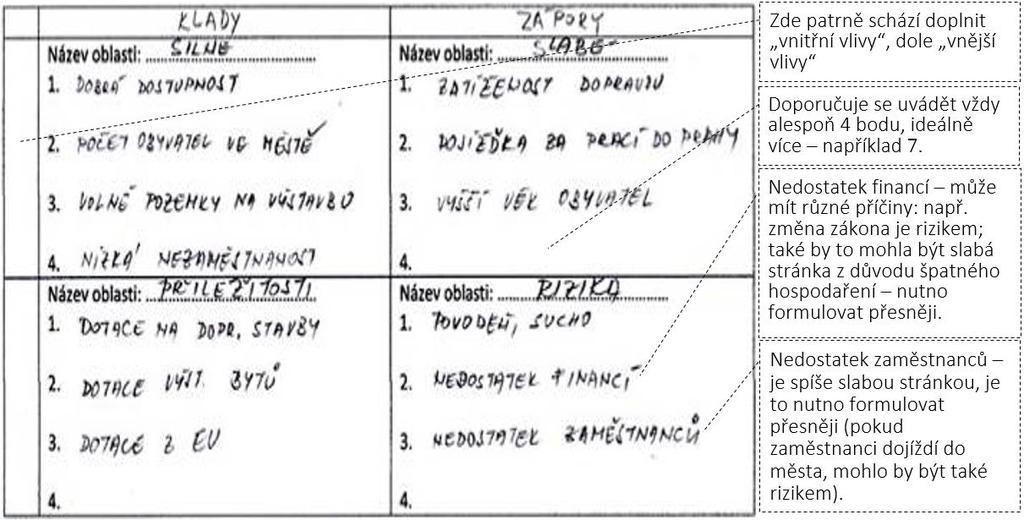 KLADY
ZÁPORY
Název oblasti: SILNÉ
1. DOBRÁ DOSTUPNOST
2. POČET OBYVATEL VE MĚSTĚ
3. VOLNÉ POZEMKY NA VÝSTAVBU
4. NÍZKÁ NEZAMĚSTNANOST
Název oblasti: SLABÉ
1. ZATÍŽENOST DOPRAVOU
2. DOJÍŽĎKA ZA PRACÍ DO PRAHY
3. VYŠŠÍ VĚK OBYVATEL
4.
Název oblasti: PŘÍLEŽITOSTI
1. DOTACE NA DOPR. STAVBY
2. DOTACE VÝST. BYTŮ
3. DOTACE Z EU
4.
Název oblasti: RIZIKA
1. POVODEŇ, SUCHO
2. NEDOSTATEK FINANCÍ
3. NEDOSTATEK ZAMĚSTNANCŮ
4.
Zde patrně schází doplnit
„vnitřní vlivy“, dole „vnější
vlivy“
Doporučuje se uvádět vždy
alespoň 4 bodu, ideálně
více – například 7.
Nedostatek financí – může
mít různé příčiny: např.
změna zákona je rizikem;
také by to mohla být slabá
stránka z důvodu špatného
hospodaření – nutno
formulovat přesněji.
Nedostatek zaměstnanců –
je spíše slabou stránkou, je
to nutno formulovat
přesněji (pokud
zaměstnanci dojíždí do
města, mohlo by být také
rizikem).